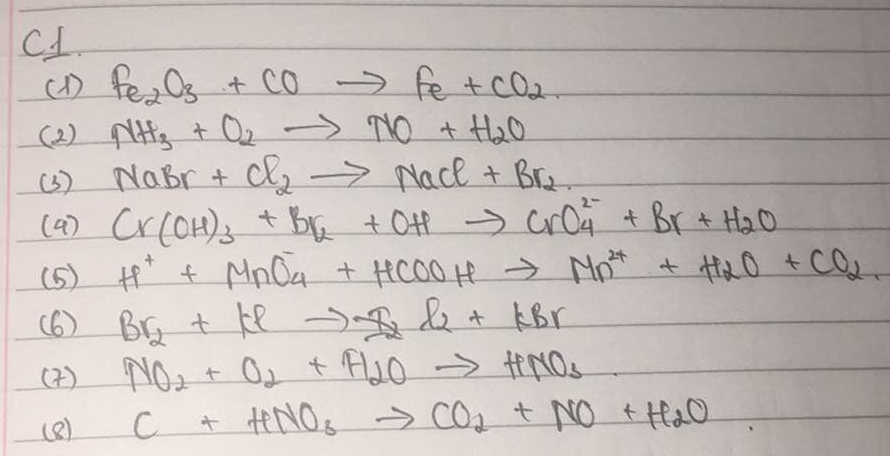 C1.
(1) Fe₂O₃ + CO → Fe + CO₂.
(2) NH₃ + O₂ → NO + H₂O
(3) NaBr + Cl₂ → NaCl + Br₂.
(4) Cr(OH)₃ + Br₂ + OH → CrO₄²⁻ + Br + H₂O
(5) H⁺ + MnO₄⁻ + HCOOH → Mn²⁺ + H₂O + CO₂.
(6) Br₂ + KI → I₂ + KBr
(7) NO₂ + O₂ + H₂O → HNO₃.
(8) C + HNO₃ → CO₂ + NO + H₂O.